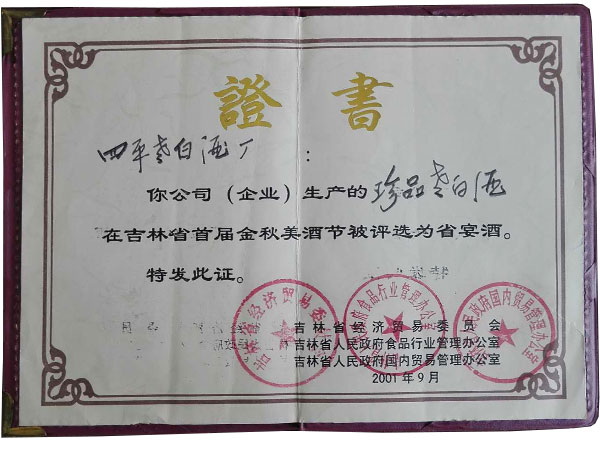 證書
四平老白酒厂：
你公司（企业）生产的珍品老白酒
在吉林省首届金秋美酒节被评选为省宴酒。
特发此证。
吉林省经济贸易委员会
吉林省人民政府食品行业管理办公室
吉林省人民政府国内贸易管理办公室
2001年9月